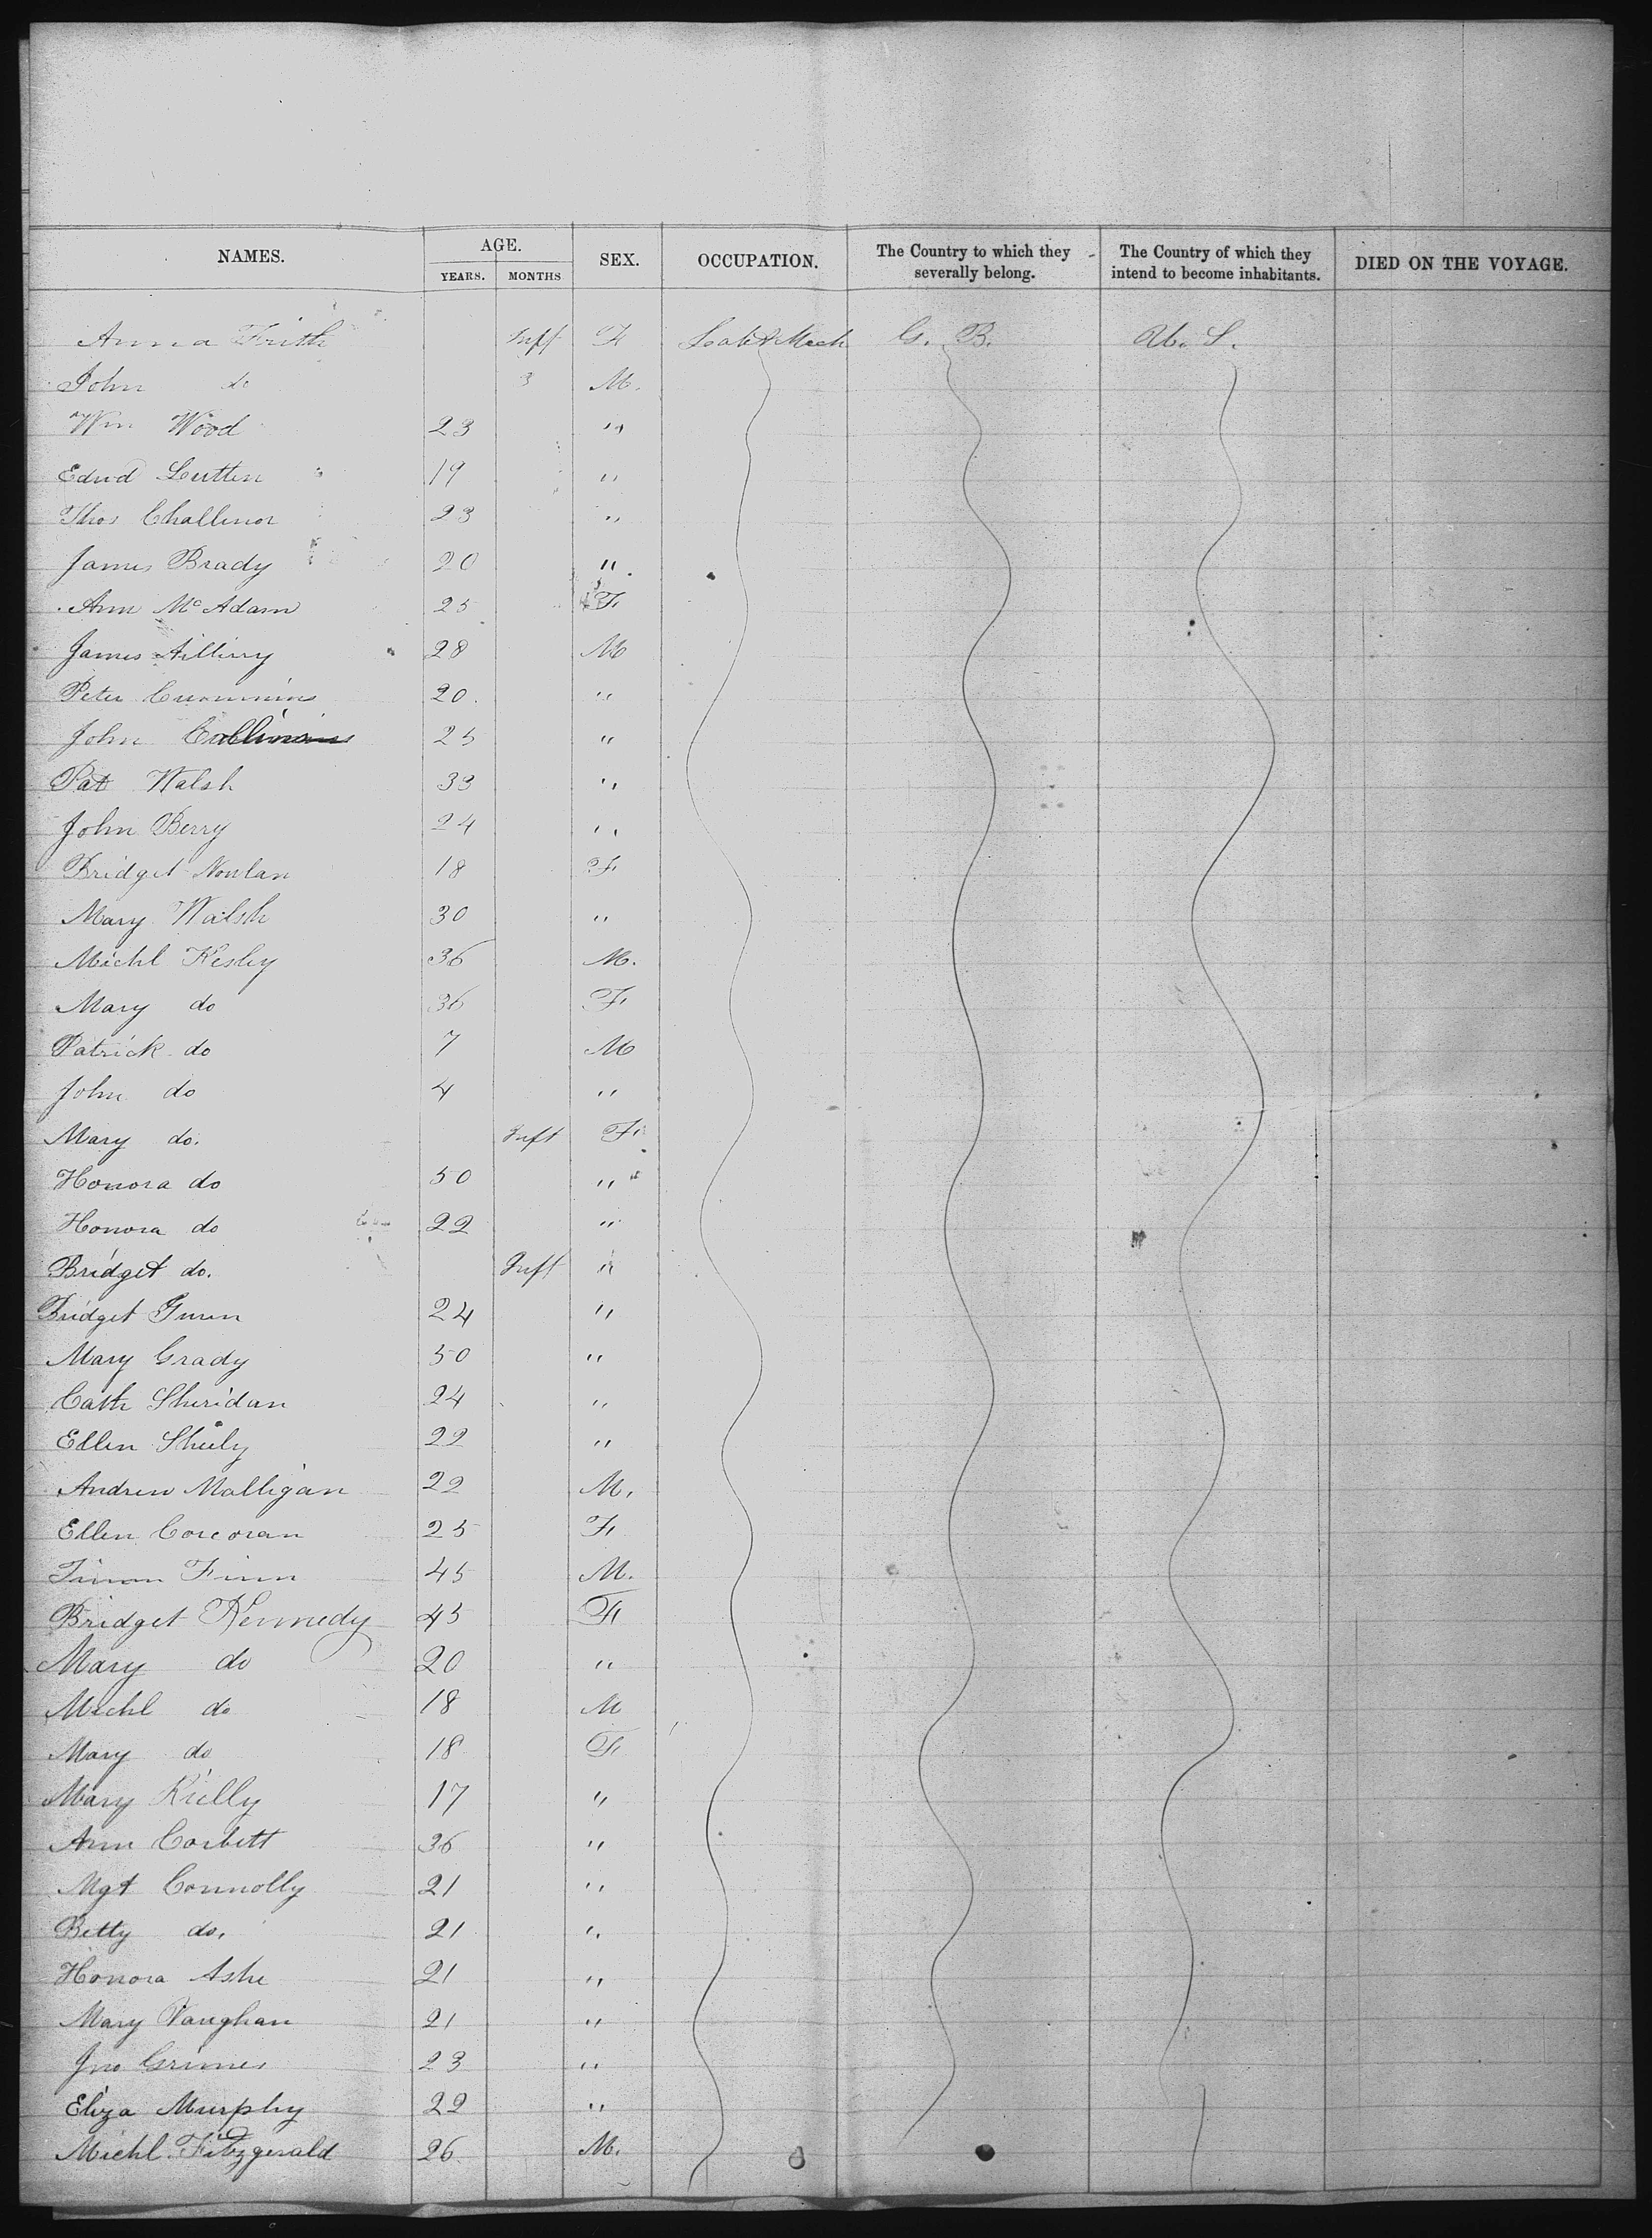 NAMES. AGE. SEX. OCCUPATION. The Country to which they severally belong. The Country of which they intend to become inhabitants. DIED ON THE VOYAGE.
YEARS. MONTHS
Anna Frith Inft F Lab & Mech G. B. U. S.
John do 3 M.
Wm Wood 23 "
Edwd Lutten 19 "
Thos Challinor 23 "
James Brady 20 "
Ann McAdam 25 F
James 28 M
Peter Cummins 20 "
John 25 "
Pat Walsh 33 "
John Berry 24 "
Bridget Nowlan 18 F
Mary Walsh 30 "
Michl Kesley 36 M.
Mary do 36 F
Patrick do 7 M
John do 4 "
Mary do. Inft F
Honora do 50 "
Honora do 22 "
Bridget do. Inft "
Bridget 24 "
Mary Grady 50 "
Cath Sheridan 24 "
Ellen Sheely 22 "
Andrew Malligan 22 M.
Ellen Corcoran 25 F
Finn 45 M.
Bridget Kennedy 45 F
Mary do 20 "
Michl do 18 M
Mary do 18 F
Mary Rielly 17 "
Ann Corbett 36 "
Mgt Connolly 21 "
Betty do. 21 "
Honora Ashe 21 "
Mary Vaughan 21 "
Jno Grimes 23 "
Eliza Murphy 22 "
Michl Fitzgerald 26 M.